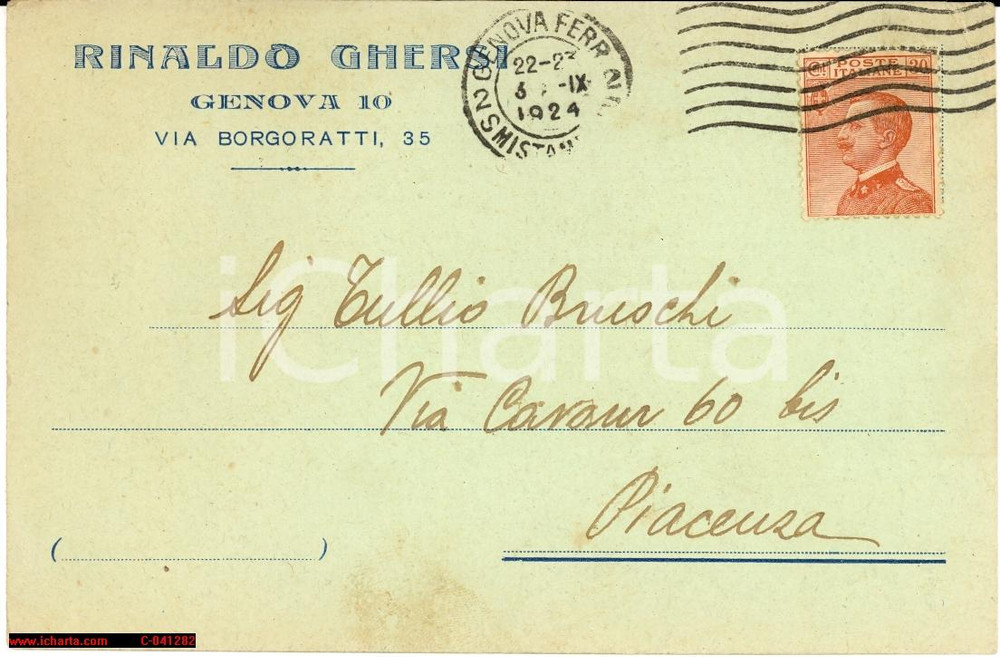 RINALDO GHERSI
GENOVA 10
VIA BORGORATTI, 35
GENOVA FERR
22-2
-IX
1924
POSTE
ITALIANE
30
iCharta
Sig Tullio Bruschi
Via Cavour 60 bis
Piacenza
( )
www.icharta.com C-041282